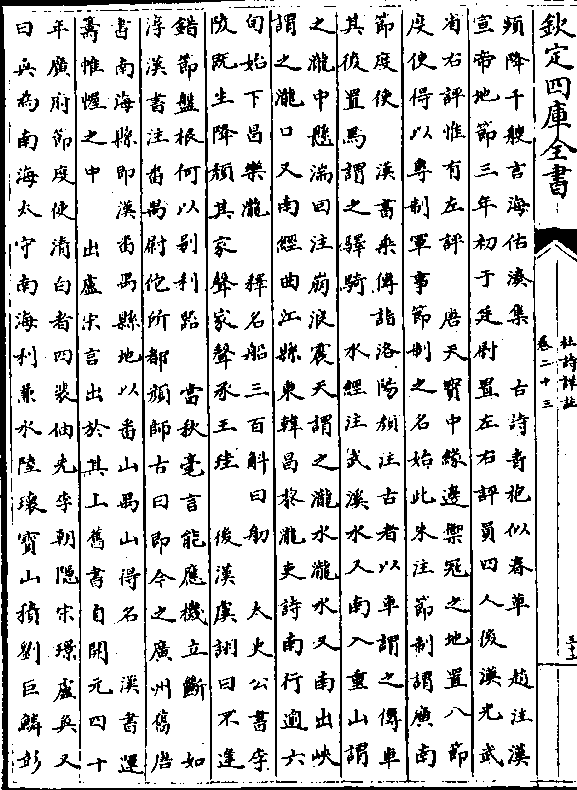 欽定四庫全書
杜詩詳註
卷二十三
頻降千艘言海估湊集 古詩青袍似春草 趙注漢
宣帝地節三年初于廷尉置左右評員四人後漢光武
省右評惟有左評 唐天寶中緣邊禦冦之地置八節
度使得以專制軍事節制之名始此朱注節制謂廣南
節度使 漢書乘傳詣洛陽顔注古者以車謂之傳車
其後置馬謂之驛騎 水經注武溪水又南入重山謂
之瀧中懸湍回注崩浪震天謂之瀧水瀧水又南出峽
謂之瀧口又南經曲江縣東韓昌黎瀧吏詩南行逾六
旬始下昌樂瀧 釋名船三百斛曰舠 太史公書李
陵既生降頽其家聲家聲承王珪 後漢虞詡曰不逢
錯節盤根何以别利器 當秋毫言能應機立斷 如
淳漢書注番禺尉佗所都顔師古曰即今之廣州舊唐
書南海縣即漢番禺縣地以番山禺山得名 漢書運
籌帷幄之中 出盧宋言出於其上舊書自開元四十
年廣府節度使清白者四裴伷先李朝隱宋璟盧奐又
曰奐為南海太守南海利兼水陸瓌寶山積劉巨鱗彭